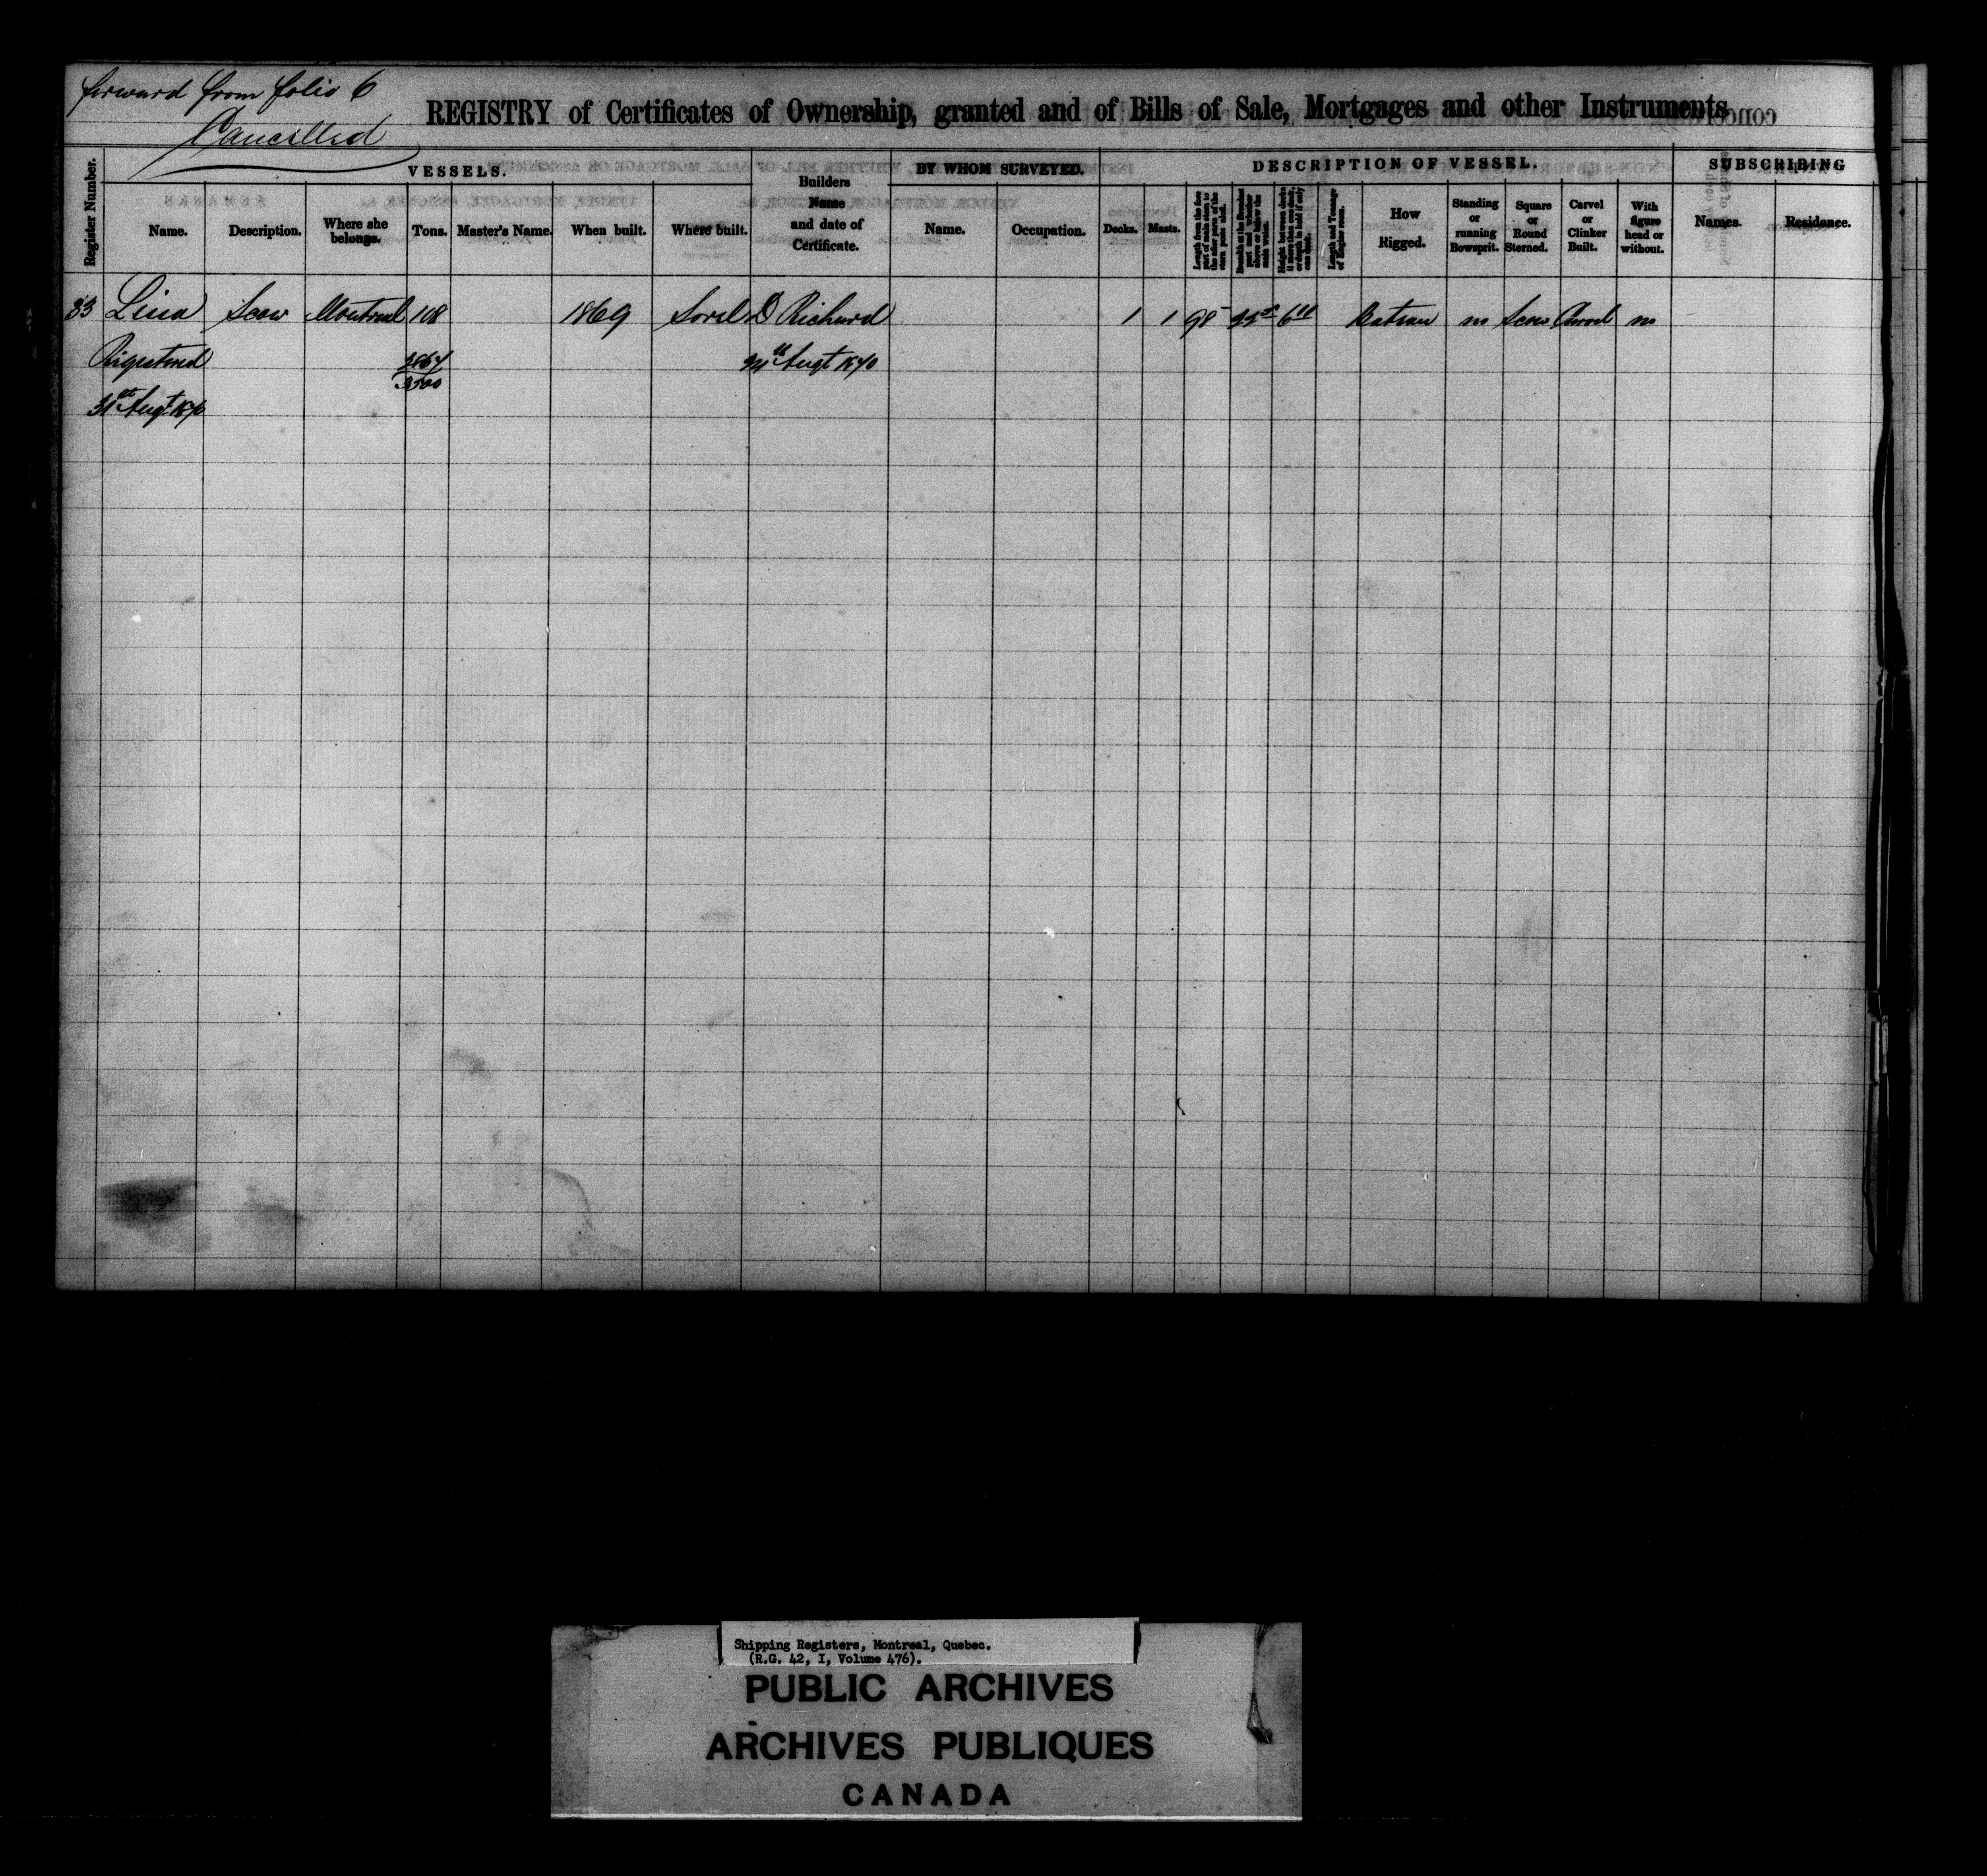 forward from folio 6
Cancelled
REGISTRY of Certificates of Ownership, granted and of Bills of Sale, Mortgages and other Instruments
Register Number.
VESSELS.
Name.
Description.
Where she belongs.
Tons.
Master's Name.
When built.
Where built.
Builders
Name
and date of
Certificate.
BY WHOM SURVEYED.
Name.
Occupation.
DESCRIPTION OF VESSEL.
Decks.
Masts.
Length from the fore part of main stem to the after part of the stern post aloft.
Breadth at the Broadest part and whether above or below the main wales.
Height between decks if more than one deck or depth in hold if only one deck.
Length and Tonnage of Engine room.
How
Rigged.
Standing
or
running
Bowsprit.
Square
or
Round
Sterned.
Carvel
or
Clinker
Built.
With
figure
head or
without.
SUBSCRIBING
Names.
Residence.
33 Lina Scow Montreal 108 1869 Sorel D Richard 1 1 98 Scow Carvel no
31st Augt
Shipping Registers, Montreal, Quebec.
(R.G. 42, I, Volume 476).
PUBLIC ARCHIVES
ARCHIVES PUBLIQUES
CANADA